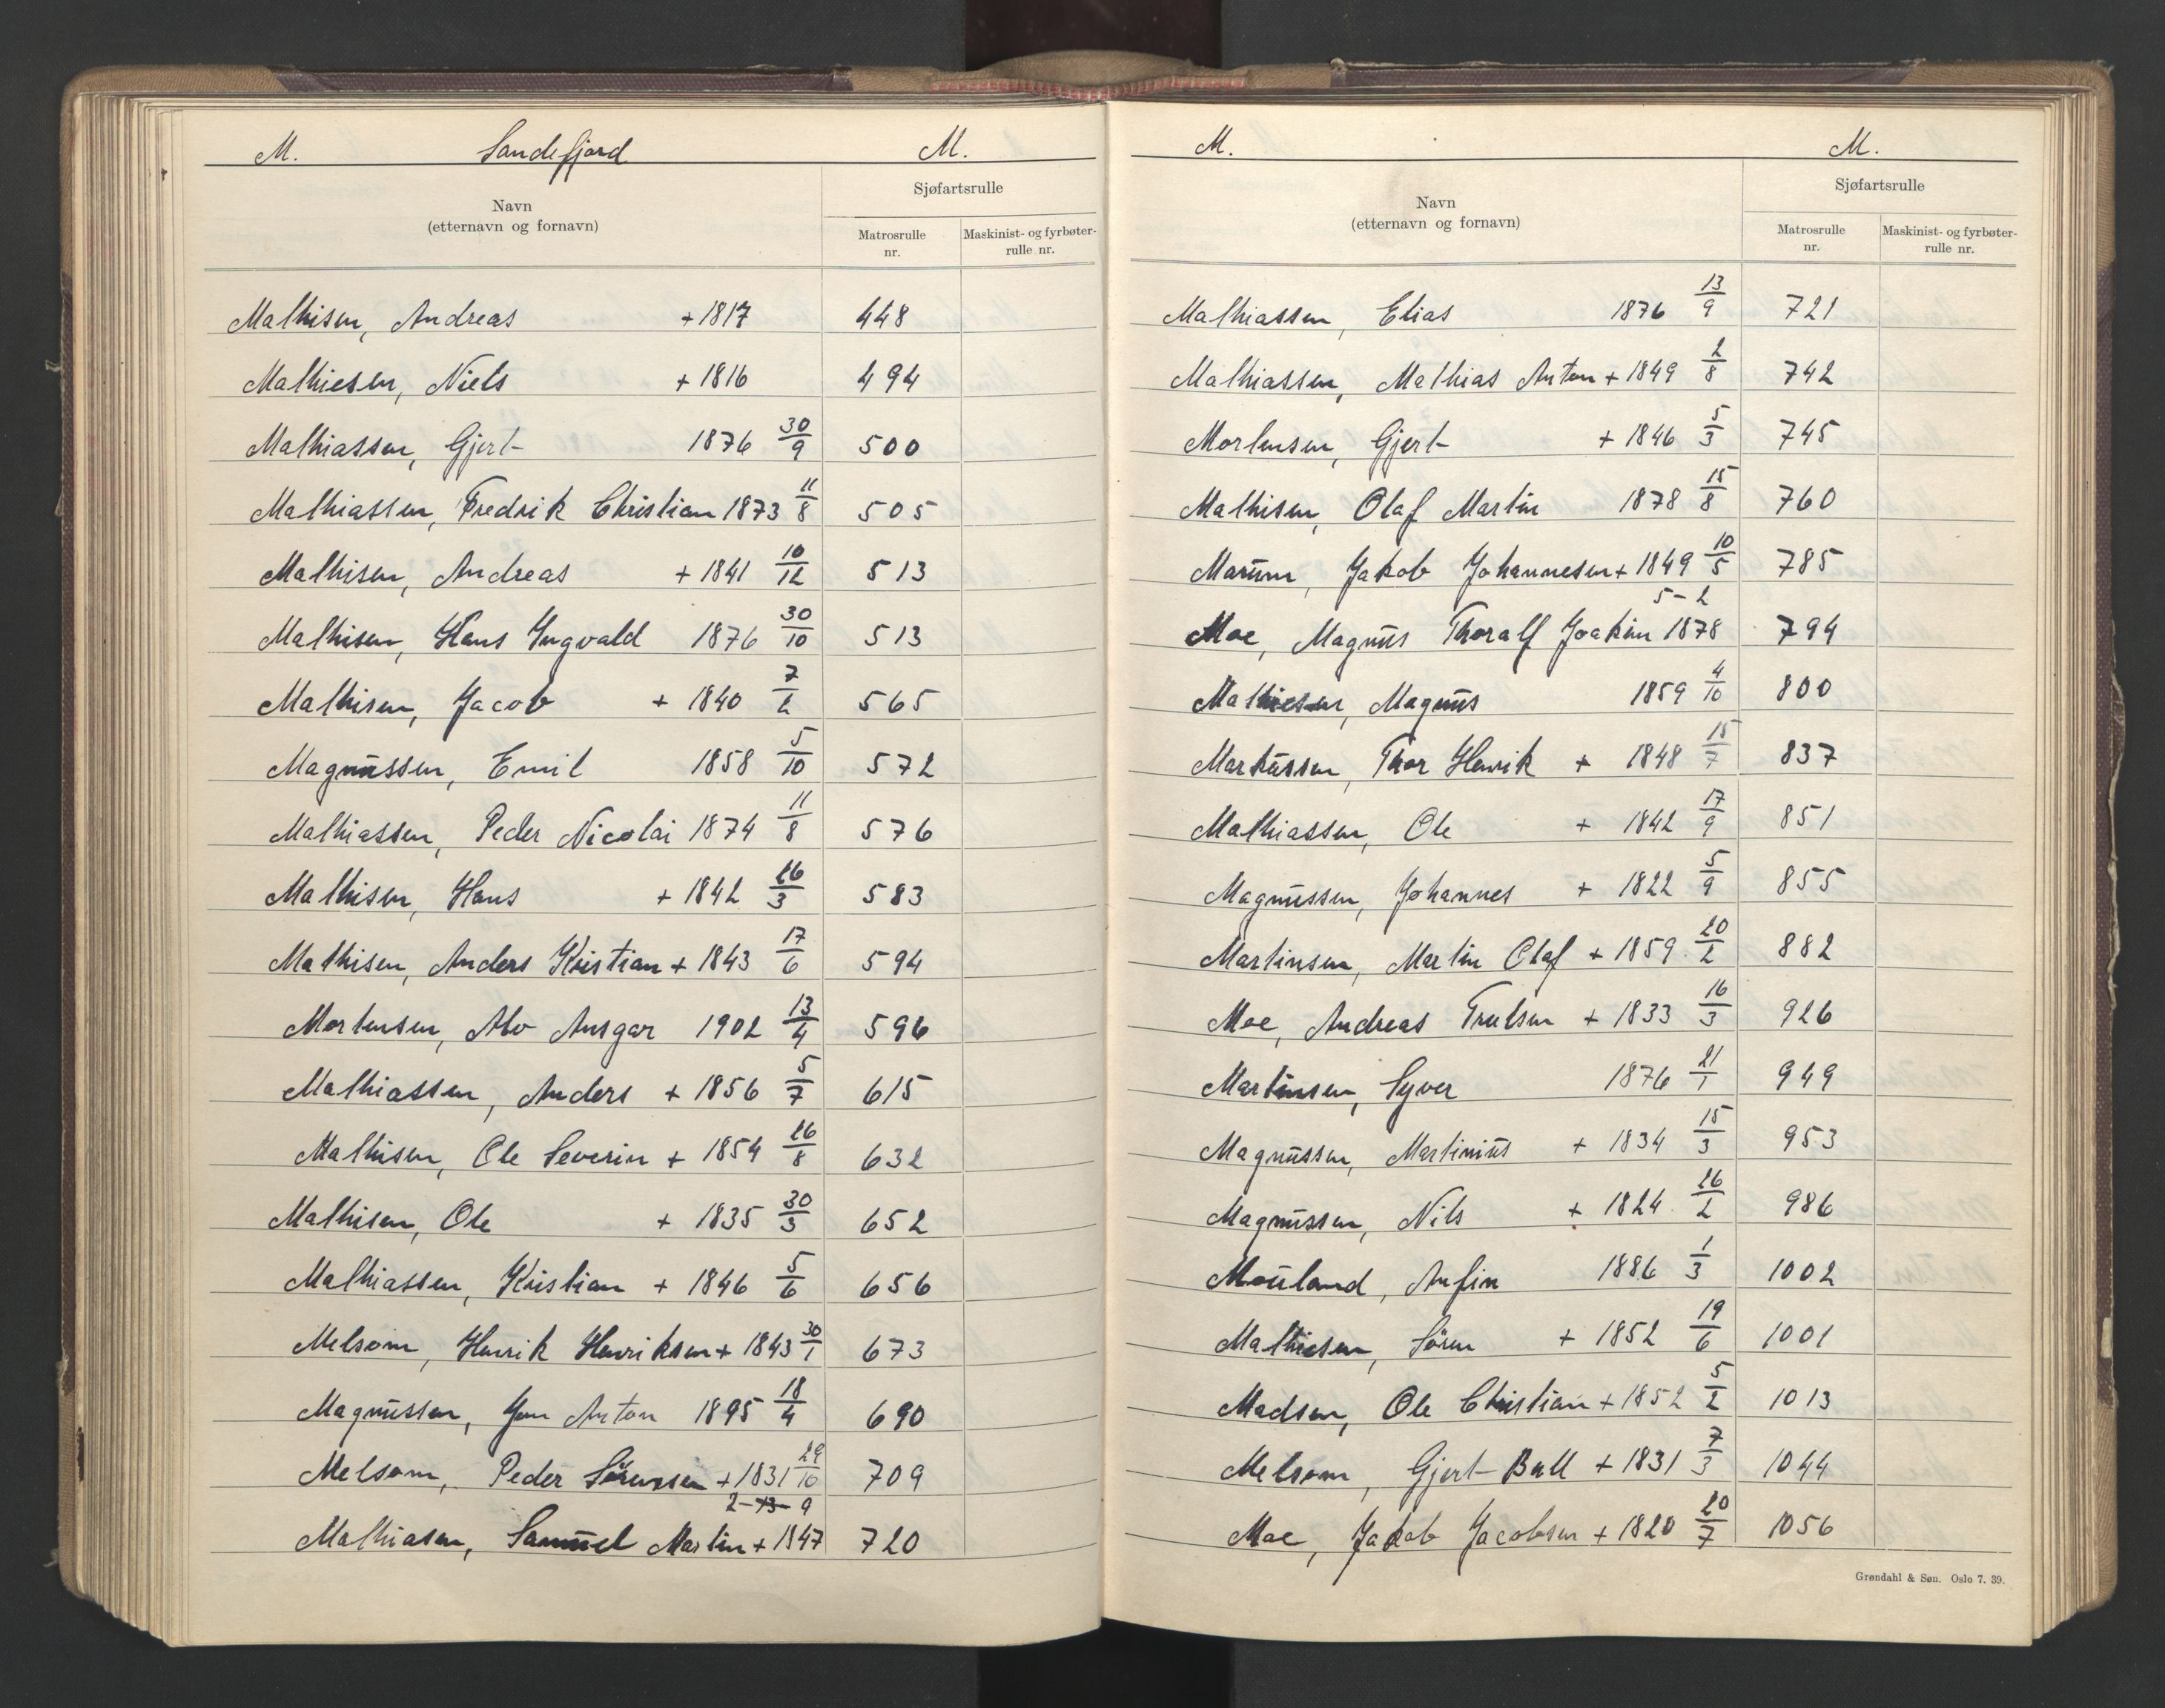 M. Sandefjord M.
Navn
(etternavn og fornavn)
Sjøfartsrulle
Matrosrulle
nr.
Maskinist- og fyrbøter-
rulle nr.
Mathisen, Andreas + 1817 448
Mathiesen, Niels + 1816 494
Mathiassen, Gjert 1876 30/9 500
Mathiassen, Fredrik Christian 1873 11/8 505
Mathisen, Andreas + 1841 10/12 513
Mathisen, Hans Ingvald 1876 30/10 513
Mathisen, Jacob + 1840 7/2 565
Magnussen, Emil 1858 5/10 572
Mathiassen, Peder Nicolai 1874 11/8 576
Mathisen, Hans + 1842 26/3 583
Mathisen, Anders Kristian + 1843 17/6 594
Mortensen, Alv Ansgar 1902 13/4 596
Mathiassen, Anders + 1856 5/7 615
Mathisen, Ole Severin + 1854 26/8 632
Mathisen, Ole + 1835 30/3 652
Mathiassen, Kristian + 1846 5/6 656
Melsom, Henrik Henriksen + 1843 30/1 673
Magnussen, Jon Anton 1895 18/4 690
Melsom, Peder Sörenssen + 1831 29/10 709
2-13- 9
Mathiasen, Samuel Martin + 1847 720
M. M.
Navn
(etternavn og fornavn)
Sjøfartsrulle
Matrosrulle
nr.
Maskinist- og fyrbøter-
rulle nr.
Mathiassen, Elias 1876 13/9 721
Mathiassen, Mathias Anton + 1849 2/8 742
Mortensen, Gjert + 1846 5/3 745
Mathisen, Olaf Martin 1878 15/8 760
Marum, Jakob Johannesen + 1849 10/5 785
5-2
Moe, Magnus Thoralf Joakim 1878 794
Mathiesen, Magnus 1859 4/10 800
Markussen, Thor Henrik + 1848 15/7 837
Mathiassen, Ole + 1842 17/9 851
Magnussen, Johannes + 1822 5/9 855
Martinsen, Martin Olaf + 1859 20/2 882
Moe, Andreas Trulsen + 1833 16/3 926
Martinsen, Syver 1876 21/1 949
Magnussen, Martinius + 1834 15/3 953
Magnussen, Nils + 1824 26/2 986
Mouland, Anfin 1886 1/3 1002
Mathiesen, Sören + 1852 19/6 1001
Madsen, Ole Christian + 1852 5/2 1013
Melsom, Gjert Bull + 1831 7/3 1044
Moe, Jakob Jacobsen + 1820 20/7 1056
Grøndahl & Søn. Oslo 7. 39.